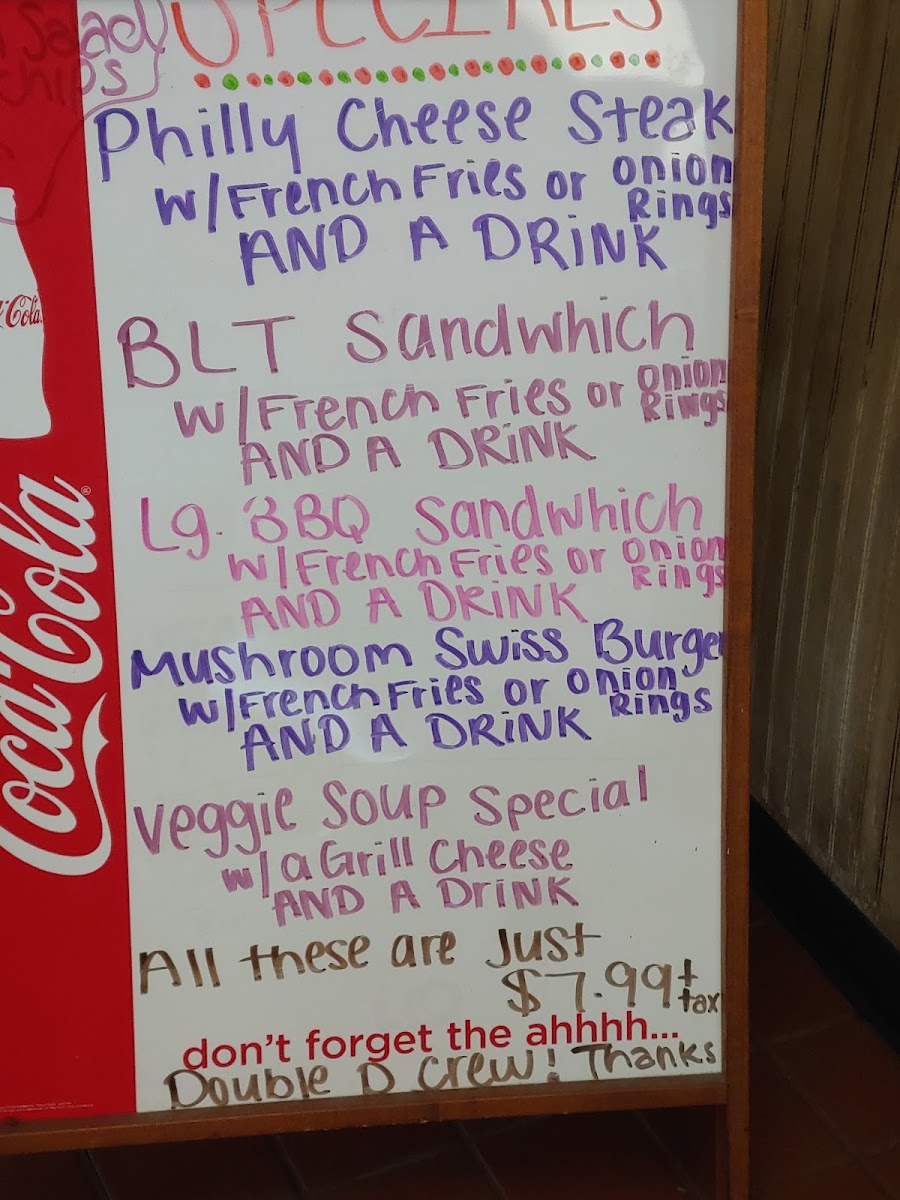 Salad
chips
SPECIALS
Philly Cheese Steak
w/French Fries or onion Rings
AND A DRINK
BLT Sandwhich
w/French Fries or onion Rings
AND A DRINK
Lg. BBQ Sandwhich
w/French Fries or onion Rings
AND A DRINK
Mushroom Swiss Burger
w/French Fries or onion Rings
AND A DRINK
Veggie Soup Special
w/a Grill Cheese
AND A DRINK
All these are Just
$7.99 + tax
don't forget the ahhhh...
Double D Crew! Thanks
Cola
Coca-Cola®